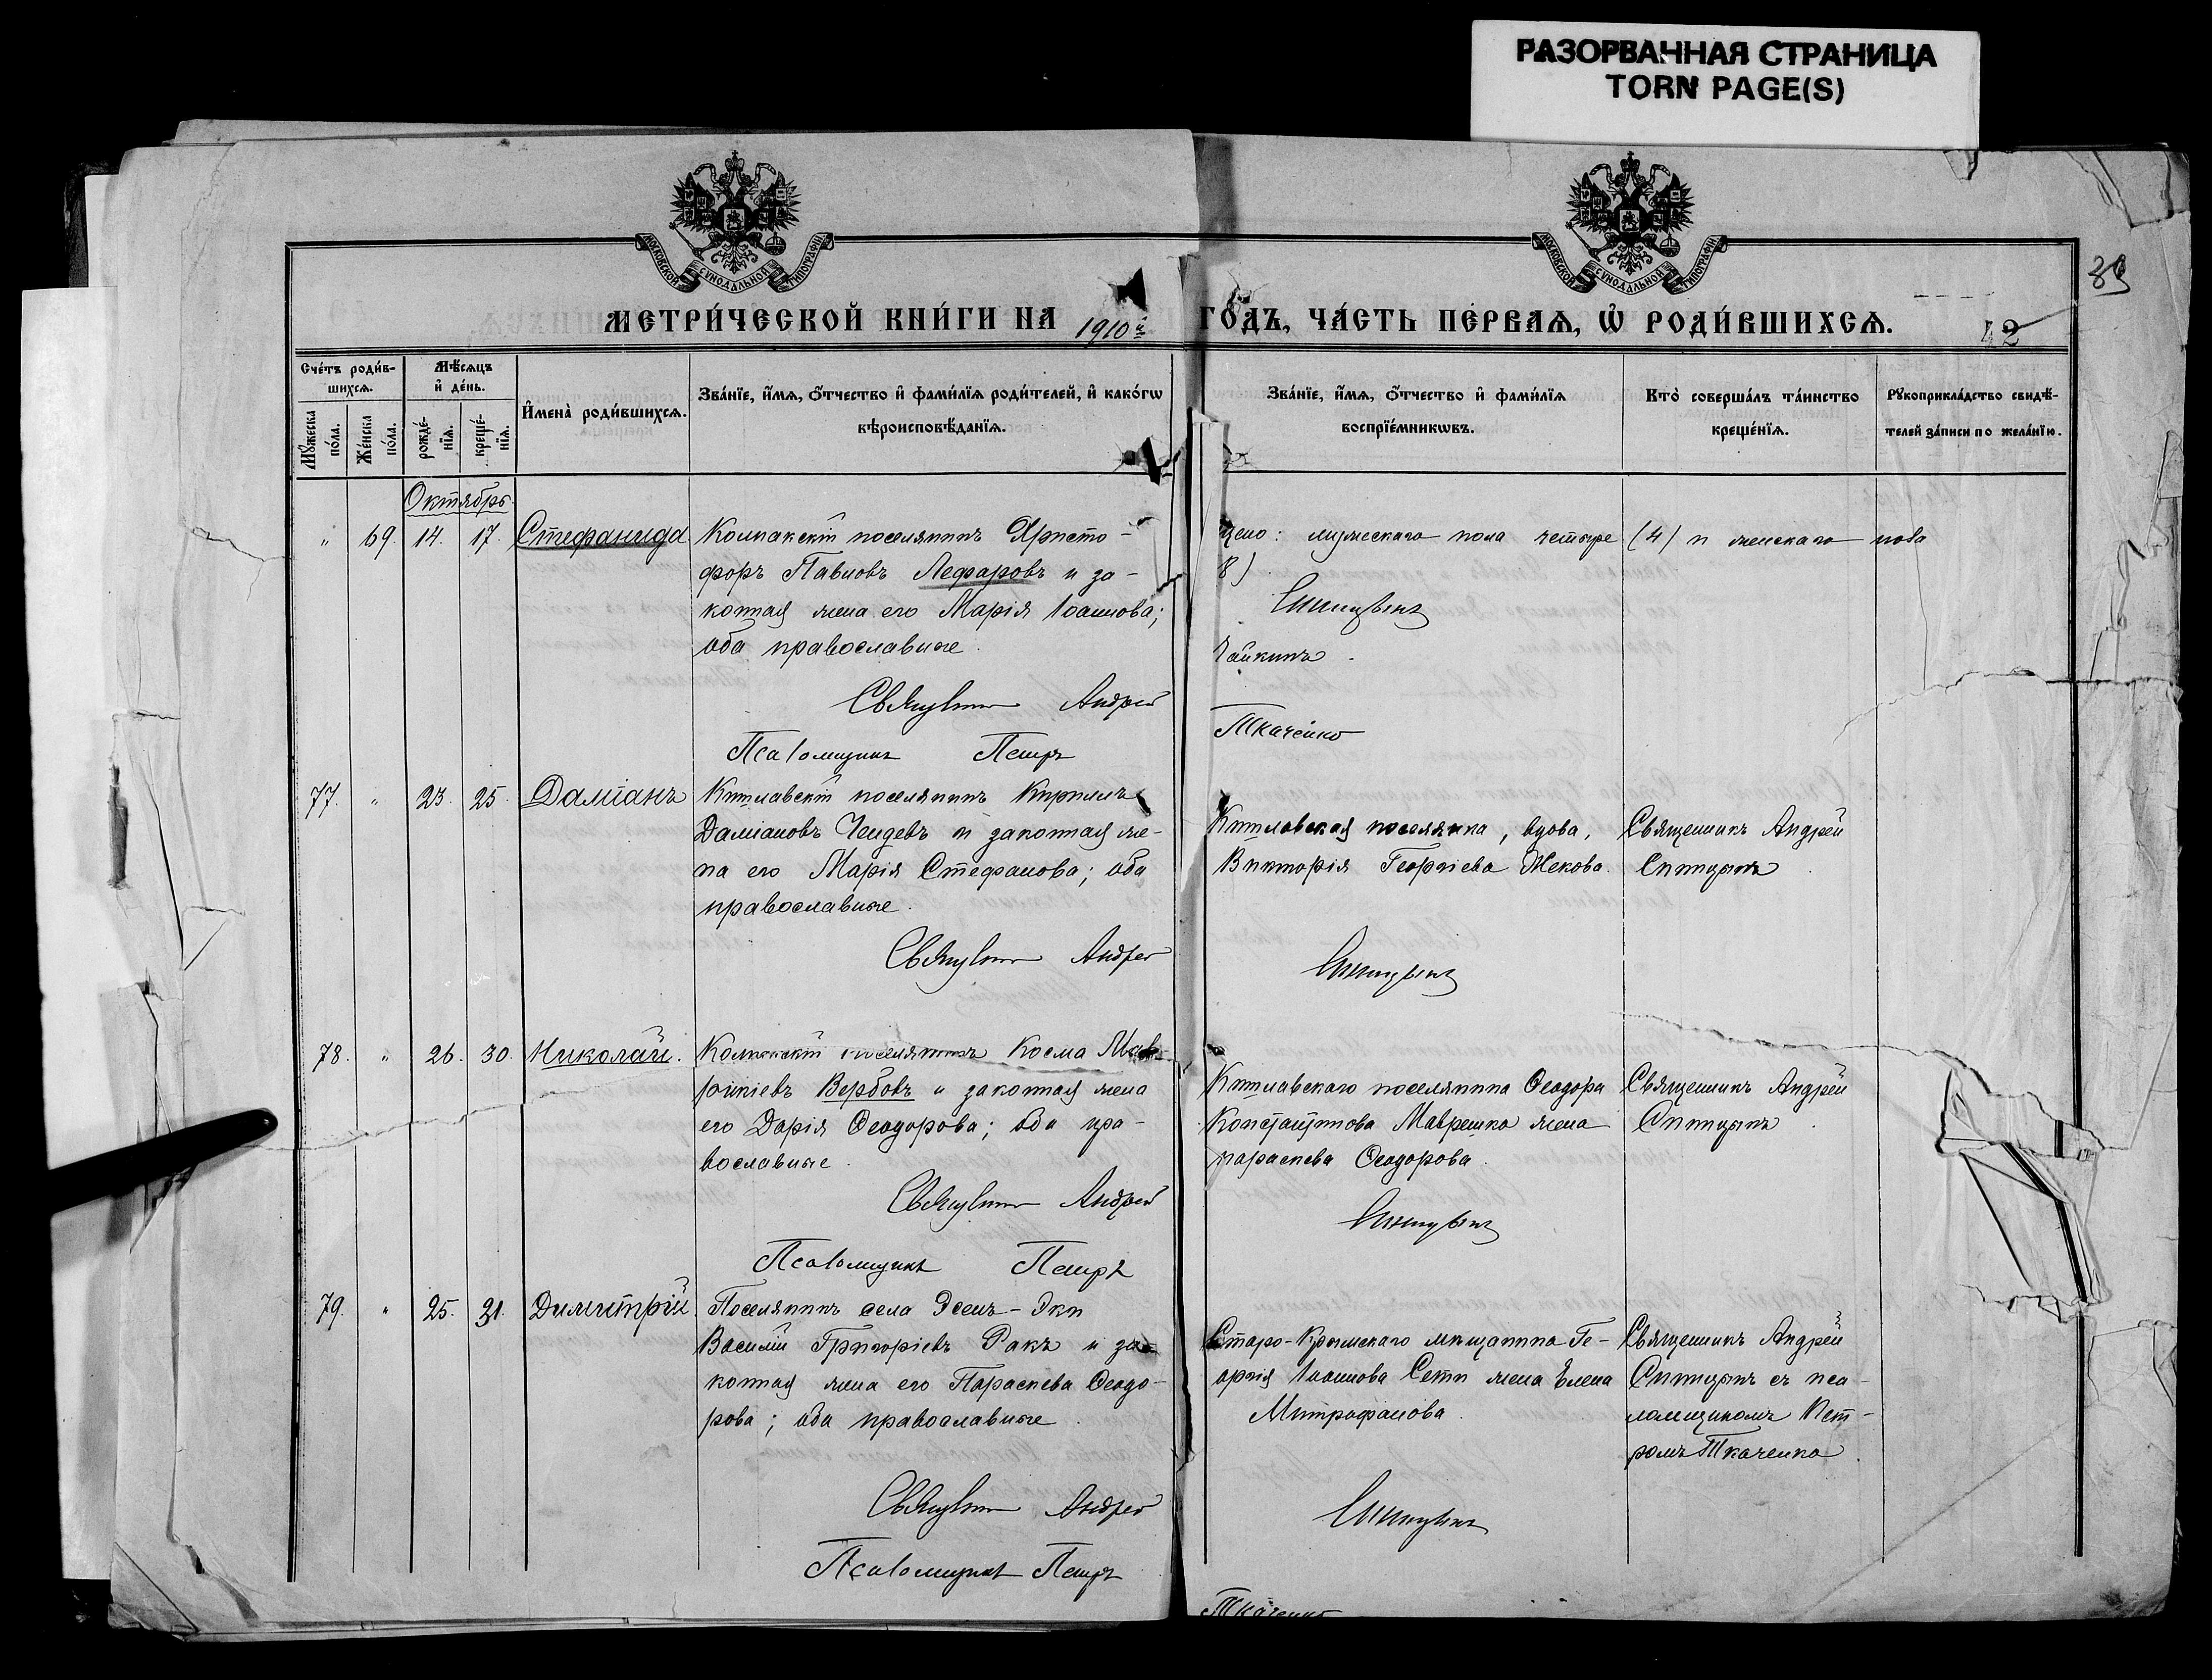 РАЗОРВАННАЯ СТРАНИЦА
TORN PAGE(S)
МОСКОВСКОЙ СѴНОДАЛЬНОЙ ТИПОГРАФІИ
МОСКОВСКОЙ СѴНОДАЛЬНОЙ ТИПОГРАФІИ
39
МЕТРИ́ЧЕСКОЙ КНИ́ГИ НА 1910й ГО́ДЪ, ЧА́СТЬ ПЕ́РВАѦ, Ѡ҆ РОДИ́ВШИХСѦ.
42
Сче́тъ роди́в-
шихсѧ.
Мꙋ́жеска по́ла.
Же́нска по́ла.
Мѣ́сѧцъ
и҆ де́нь.
рожде́-
нїѧ.
креще́-
нїѧ.
И҆мена̀ роди́вшихсѧ.
Зва́нїе, и҆́мѧ, ѻ҆́тчество и҆ фами́лїѧ роди́телей, и҆ како́гѡ
вѣроисповѣ́данїѧ.
Зва́нїе, и҆́мѧ, ѻ҆́тчество и҆ фами́лїѧ
воспрїе́мникѡвъ.
Кто̀ соверша́лъ та́инство
креще́нїѧ.
Рꙋкоприкла́дство свидѣ́-
телей за́писи по жела́нїю.
Октябрь
" 69. 14. 17. Стефанида
Колпакскій поселянинъ Христо-
форъ Павловъ Лефаровъ и за-
конная жена его Марія Іоаннова;
оба православные.
Священникъ Андрей
Псаломщикъ Петръ
щено: мужескаго пола четыре (4) и женскаго пола
8)
Спицынъ
Ткаченко
77. " 23. 25. Даміанъ
Китлавскій поселянинъ Кириллъ
Даміановъ Чендевъ и законная же-
на его Марія Стефанова; оба
православные.
Священникъ Андрей
Китлавская поселянка, вдова,
Викторія Георгіева Жекова.
Спицынъ
Священникъ Андрей
Спицынъ.
78. " 26. 30. Николай.
Колпакскій поселянинъ Косма Мав-
рикіевъ Вербовъ и законная жена
его Дарія Ѳеодорова; оба пра-
вославные.
Священникъ Андрей
Псаломщикъ Петръ
Китлавскаго поселянина Ѳеодора
Константинова Маврешко жена
Параскева Ѳеодорова.
Спицынъ
Священникъ Андрей
Спицынъ.
79. " 25. 31. Димитрій.
Поселянинъ села Эсенъ-Эки
Василій Григоріевъ Ракъ и за-
конная жена его Параскева Ѳеодо-
рова; оба православные.
Священникъ Андрей
Псаломщикъ Петръ
Старо-Крымскаго мѣщанина Ге-
оргія Іоаннова Сети жена Елена
Митрофанова.
Спицынъ
Ткаченко
Священникъ Андрей
Спицынъ съ пса-
ломщикомъ Пет-
ромъ Ткаченко.